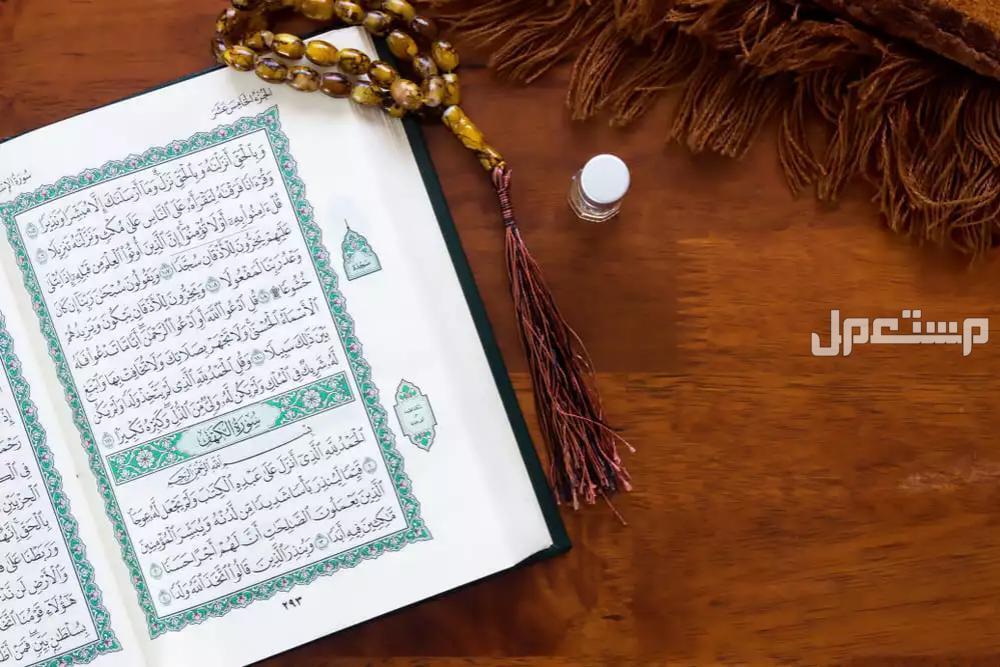 الجزء الخامس عشر
سورة
وَبِالْحَقِّ أَنزَلْنَٰهُ وَبِالْحَقِّ نَزَلَ وَمَا أَرْسَلْنَٰكَ إِلَّا مُبَشِّرًا وَنَذِيرًا ١٠٥
وَقُرْءَانًا فَرَقْنَٰهُ لِتَقْرَأَهُۥ عَلَى النَّاسِ عَلَىٰ مُكْثٍ وَنَزَّلْنَٰهُ تَنزِيلًا ١٠٦
قُلْ ءَامِنُوا بِهِۦٓ أَوْ لَا تُؤْمِنُوٓا إِنَّ الَّذِينَ أُوتُوا الْعِلْمَ مِن قَبْلِهِۦٓ إِذَا يُتْلَىٰ
عَلَيْهِمْ يَخِرُّونَ لِلْأَذْقَانِ سُجَّدًا ١٠٧ وَيَقُولُونَ سُبْحَٰنَ رَبِّنَآ إِن كَانَ
وَعْدُ رَبِّنَا لَمَفْعُولًا ١٠٨ وَيَخِرُّونَ لِلْأَذْقَانِ يَبْكُونَ وَيَزِيدُهُمْ
خُشُوعًا ۩ ١٠٩ قُلِ ادْعُوا اللَّهَ أَوِ ادْعُوا الرَّحْمَٰنَ أَيًّا مَّا تَدْعُوا فَلَهُ
الْأَسْمَآءُ الْحُسْنَىٰ وَلَا تَجْهَرْ بِصَلَاتِكَ وَلَا تُخَافِتْ بِهَا وَابْتَغِ
بَيْنَ ذَٰلِكَ سَبِيلًا ١١٠ وَقُلِ الْحَمْدُ لِلَّهِ الَّذِي لَمْ يَتَّخِذْ وَلَدًا وَلَمْ يَكُن
لَّهُۥ شَرِيكٌ فِي الْمُلْكِ وَلَمْ يَكُن لَّهُۥ وَلِيٌّ مِّنَ الذُّلِّ وَكَبِّرْهُ تَكْبِيرًا ١١١
سُورَةُ الكَهْفِ
بِسْمِ اللَّهِ الرَّحْمَٰنِ الرَّحِيمِ
الْحَمْدُ لِلَّهِ الَّذِيٓ أَنزَلَ عَلَىٰ عَبْدِهِ الْكِتَٰبَ وَلَمْ يَجْعَل لَّهُۥ عِوَجَا
١ قَيِّمًا لِّيُنذِرَ بَأْسًا شَدِيدًا مِّن لَّدُنْهُ وَيُبَشِّرَ الْمُؤْمِنِينَ
الَّذِينَ يَعْمَلُونَ الصَّٰلِحَٰتِ أَنَّ لَهُمْ أَجْرًا حَسَنًا ٢
مَّٰكِثِينَ فِيهِ أَبَدًا ٣ وَيُنذِرَ الَّذِينَ قَالُوا اتَّخَذَ اللَّهُ وَلَدًا ٤
٢٩٣
سجدة
مستعمل